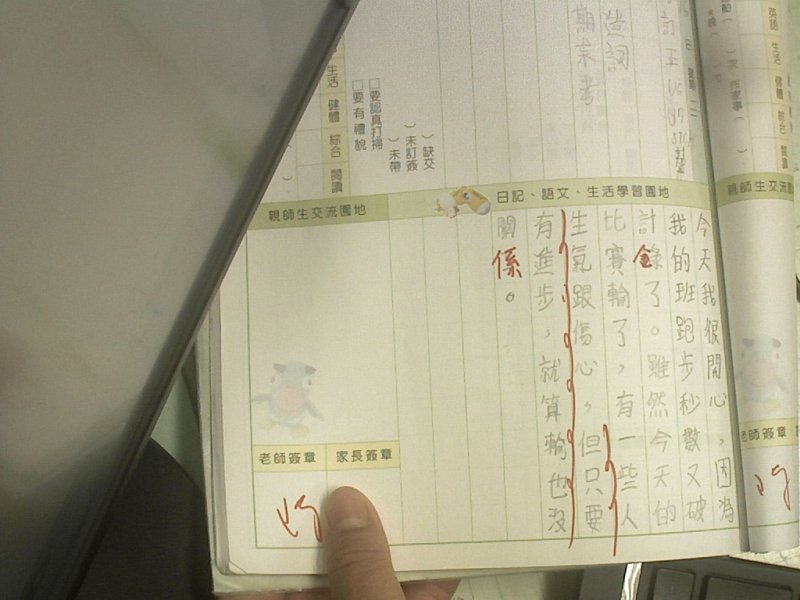 英語 生活 健體 綜合 閱讀
作家事（ ）
親師生交流園
老師簽章
訂正
造詞
期末考
）缺交
）未訂簽
）未帶
□要認真打掃
□要有禮貌
生活 健體 綜合 閱讀
日記、語文、生活學習園地
今天我很開心，因為
我的班跑步秒數又破
計錄了。雖然今天的
金
比賽輸了，有一些人
生氣跟傷心，但只要
有進步，就算輸也沒
關係。
親師生交流園地
老師簽章 家長簽章